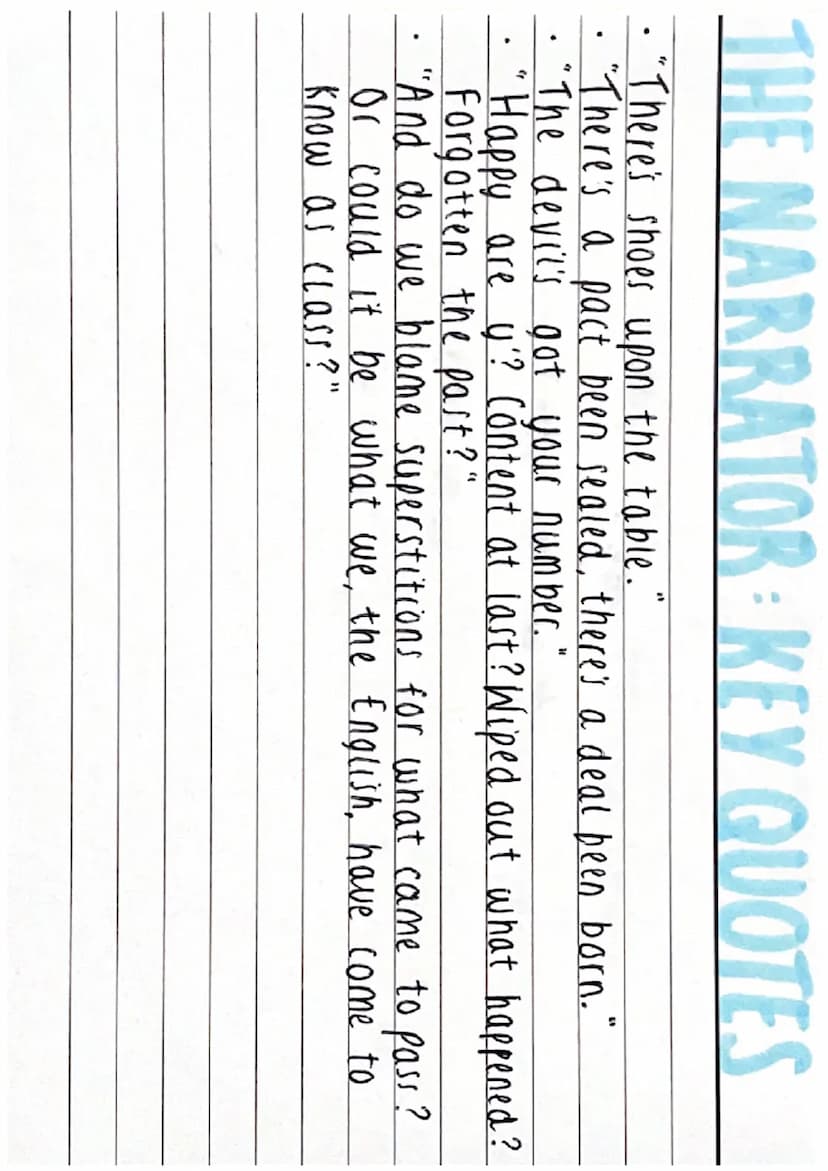 THE NARRATOR: KEY QUOTES
· "There's shoes upon the table."
· "There's a pact been sealed, there's a deal been born."
· "The devil's got your number."
· "Happy are y'? Content at last? Wiped out what happened?
Forgotten the past?"
· "And do we blame superstitions for what came to pass?
Or could it be what we, the English, have come to
know as class?"